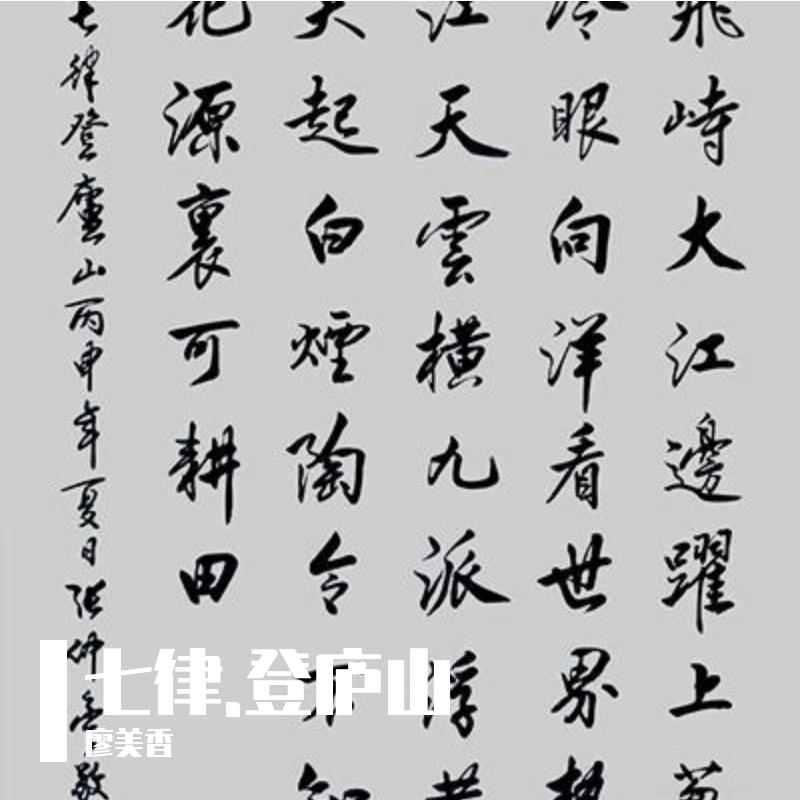 飛峙大江邊躍上葱
冷眼向洋看世界熱
江天雲橫九派浮黄
天起白煙陶令不知
花源裏可耕田
七律登廬山丙申年夏日張仲亭敬
七律.登庐山
廖美香